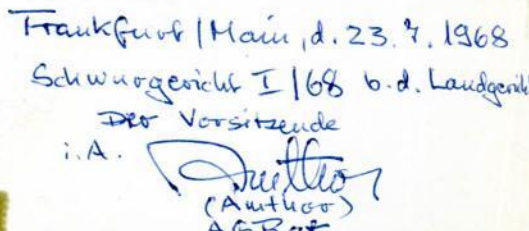 Frankfurt/Main, d. 23.7.1968
Schwurgericht I/68 b.d. Landgericht
Der Vorsitzende
i.A.
(Amthor)
AGRat